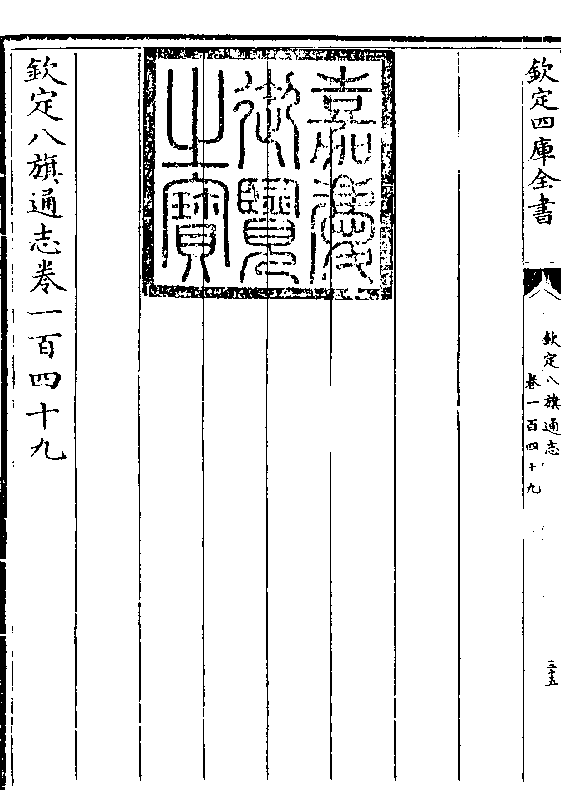 欽定四庫全書
欽定八旗通志
卷一百四十九
三十五
嘉慶
御覽
之寶
欽定八旗通志卷一百四十九